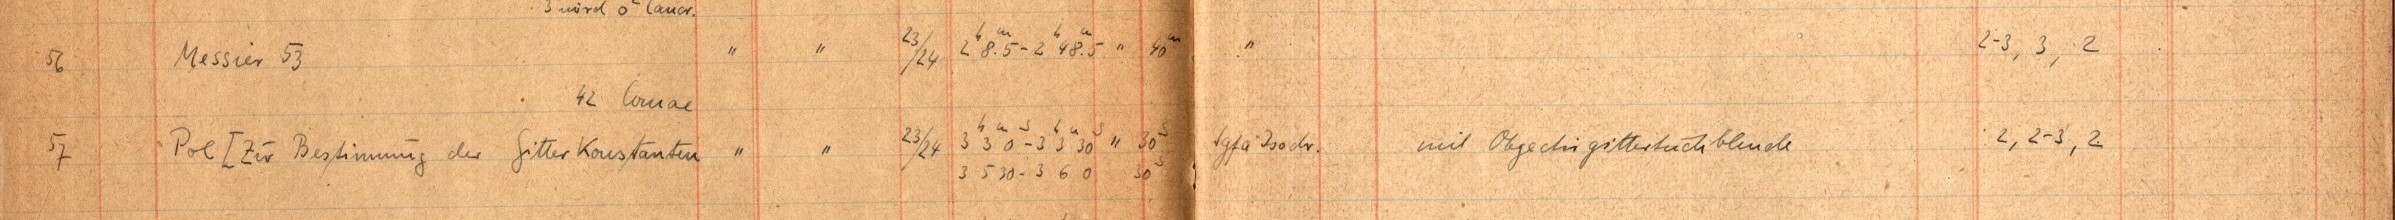 3 nörd
56 Messier 53 " " 23/24 2ʰ 8ᵐ.5 - 2ʰ 48ᵐ.5 " 40ᵐ " 2-3, 3, 2
42 Comae
57 Pol [Zur Bestimmung der Gitter Konstanten " " 23/24 3ʰ 3ᵐ 0ˢ - 3ʰ 3ᵐ 30ˢ " 30ˢ Agfa Isochr. mit Objectivgittertuchblende 2, 2-3, 2
3 5 30 - 3 6 0 30ˢ